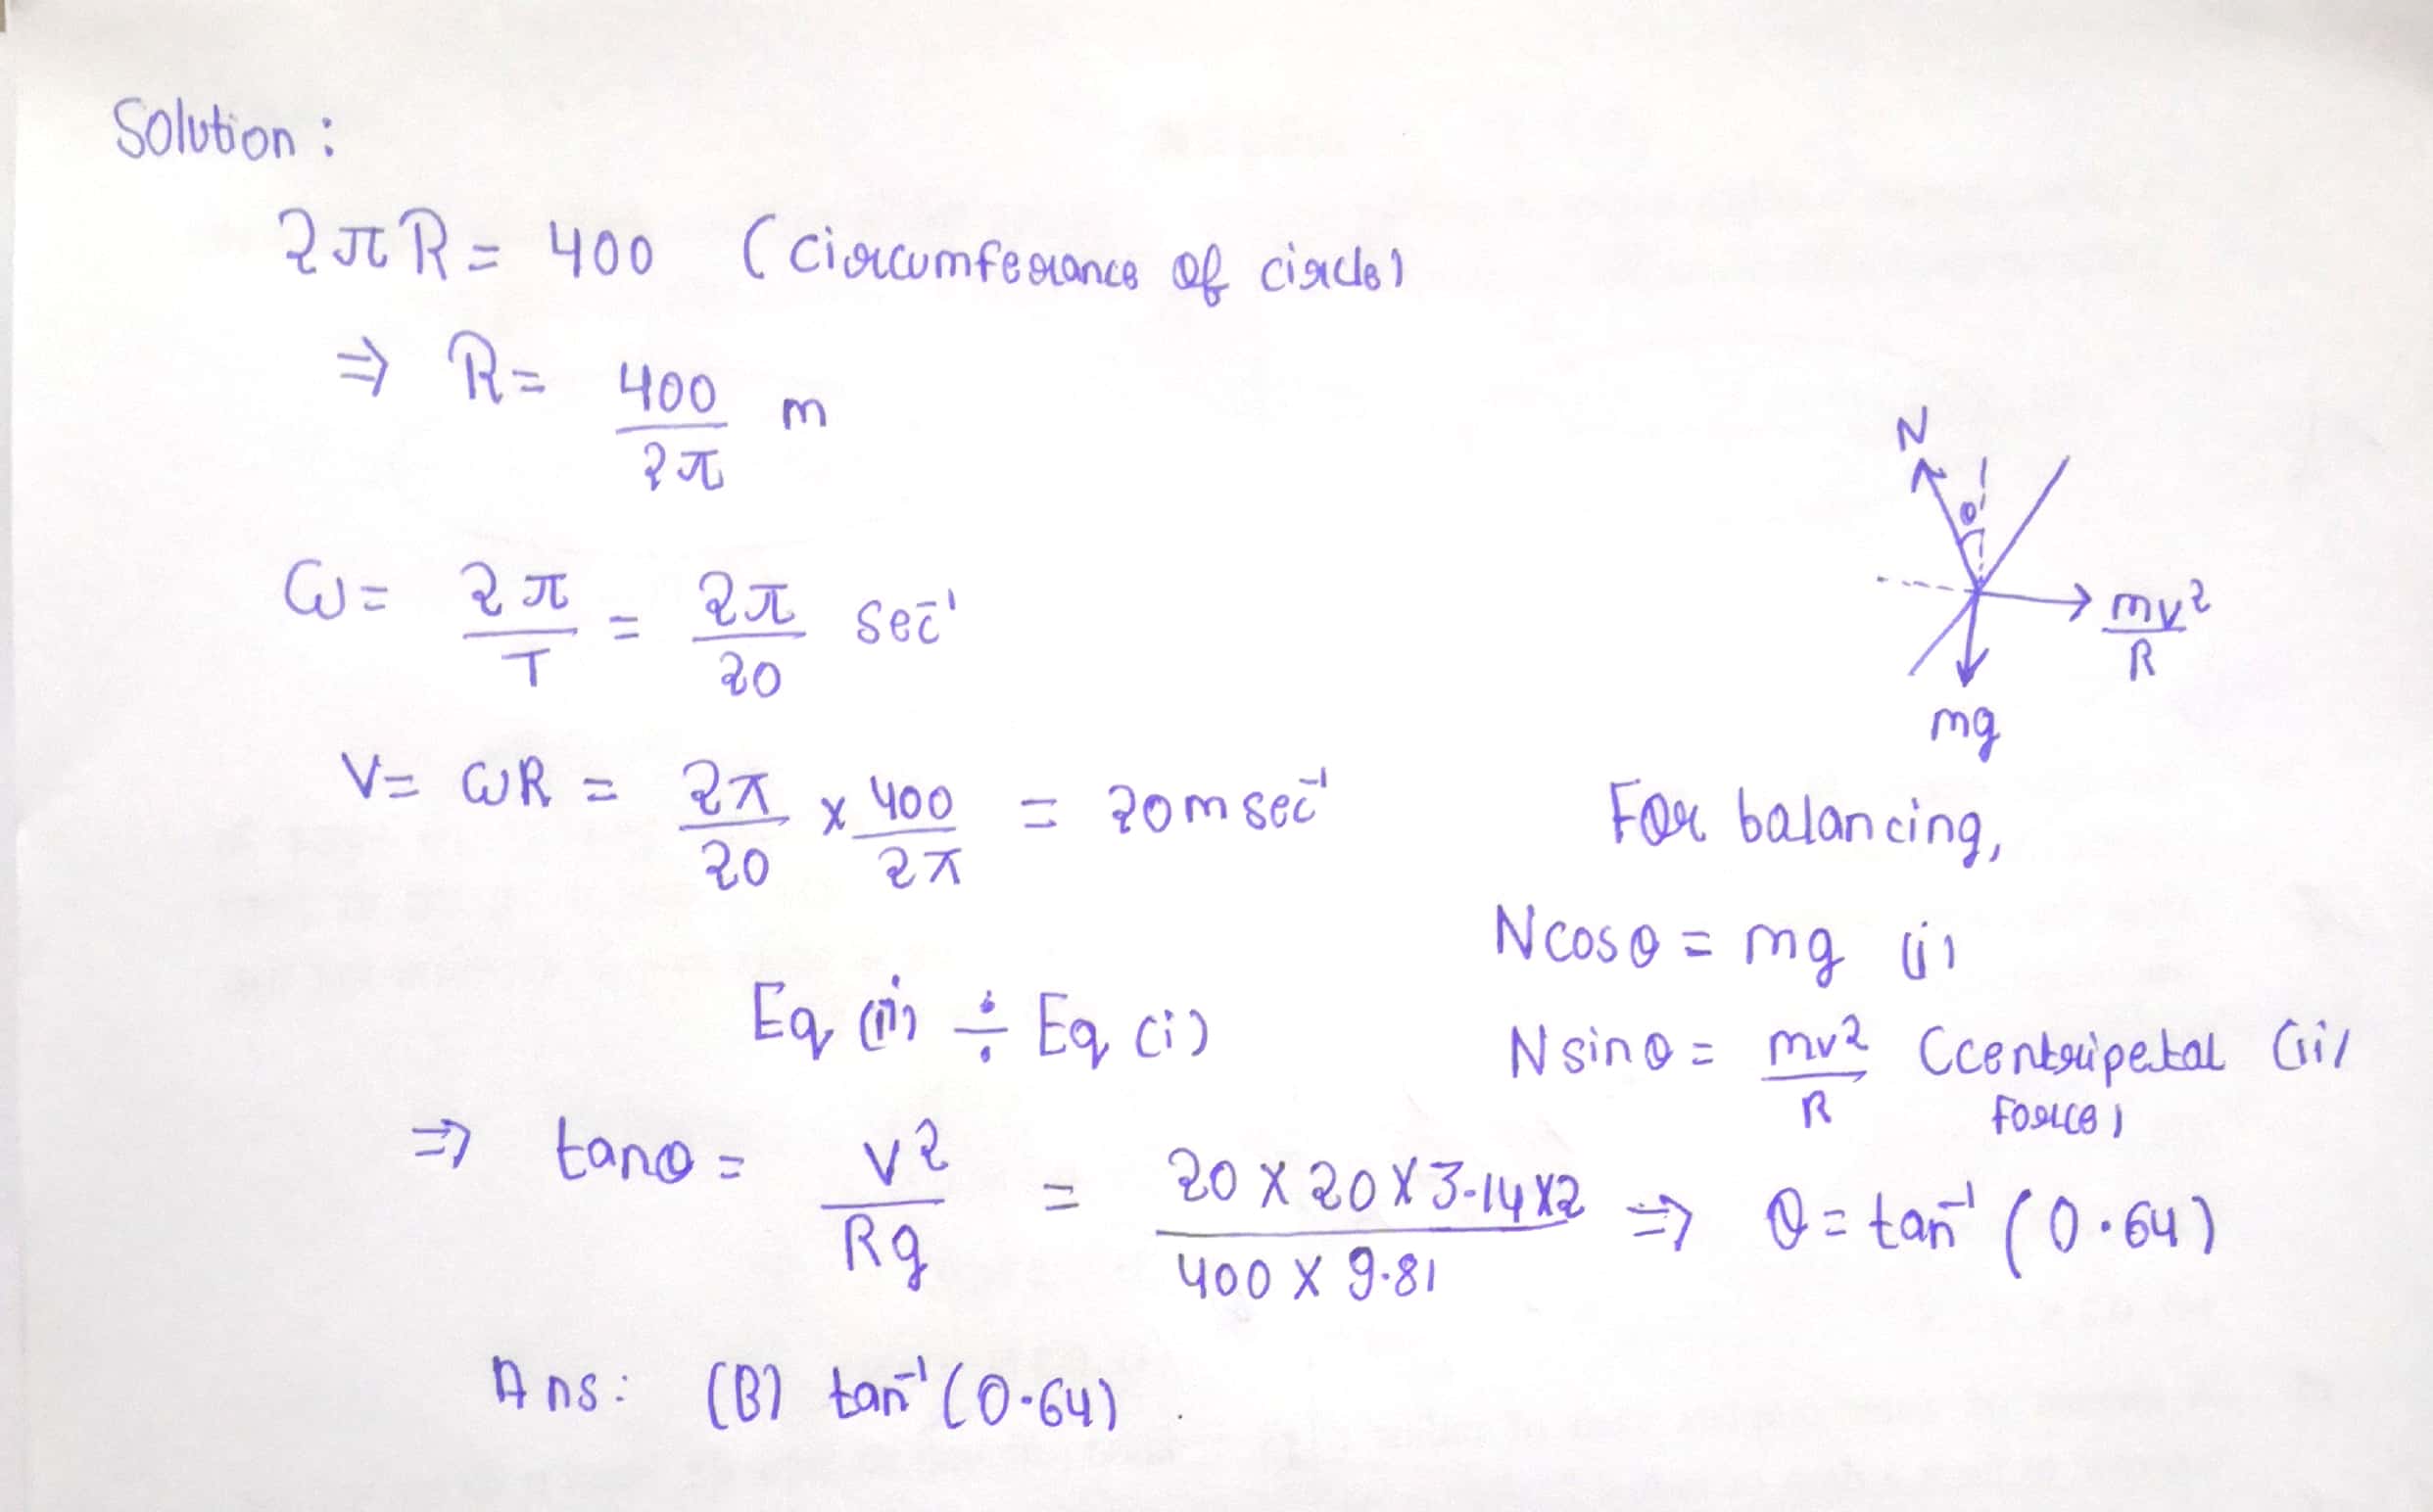 Solution :
2πR = 400 (Circumferance of circle)
⇒ R = 400/2π m
ω = 2π/T = 2π/20 sec⁻¹
V = ωR = 2π/20 × 400/2π = 20 m sec⁻¹
N
θ
mv²/R
mg
For balancing,
N cos θ = mg (i)
N sin θ = mv²/R (centripetal force) (ii)
Eq (ii) ÷ Eq (i)
⇒ tan θ = v²/Rg = 20 × 20 × 3.14 × 2 / 400 × 9.81 ⇒ θ = tan⁻¹ (0.64)
Ans: (B) tan⁻¹ (0.64)